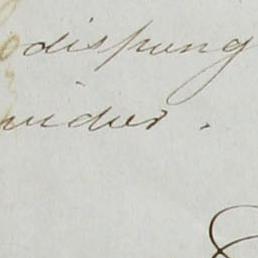 dispung
wider.